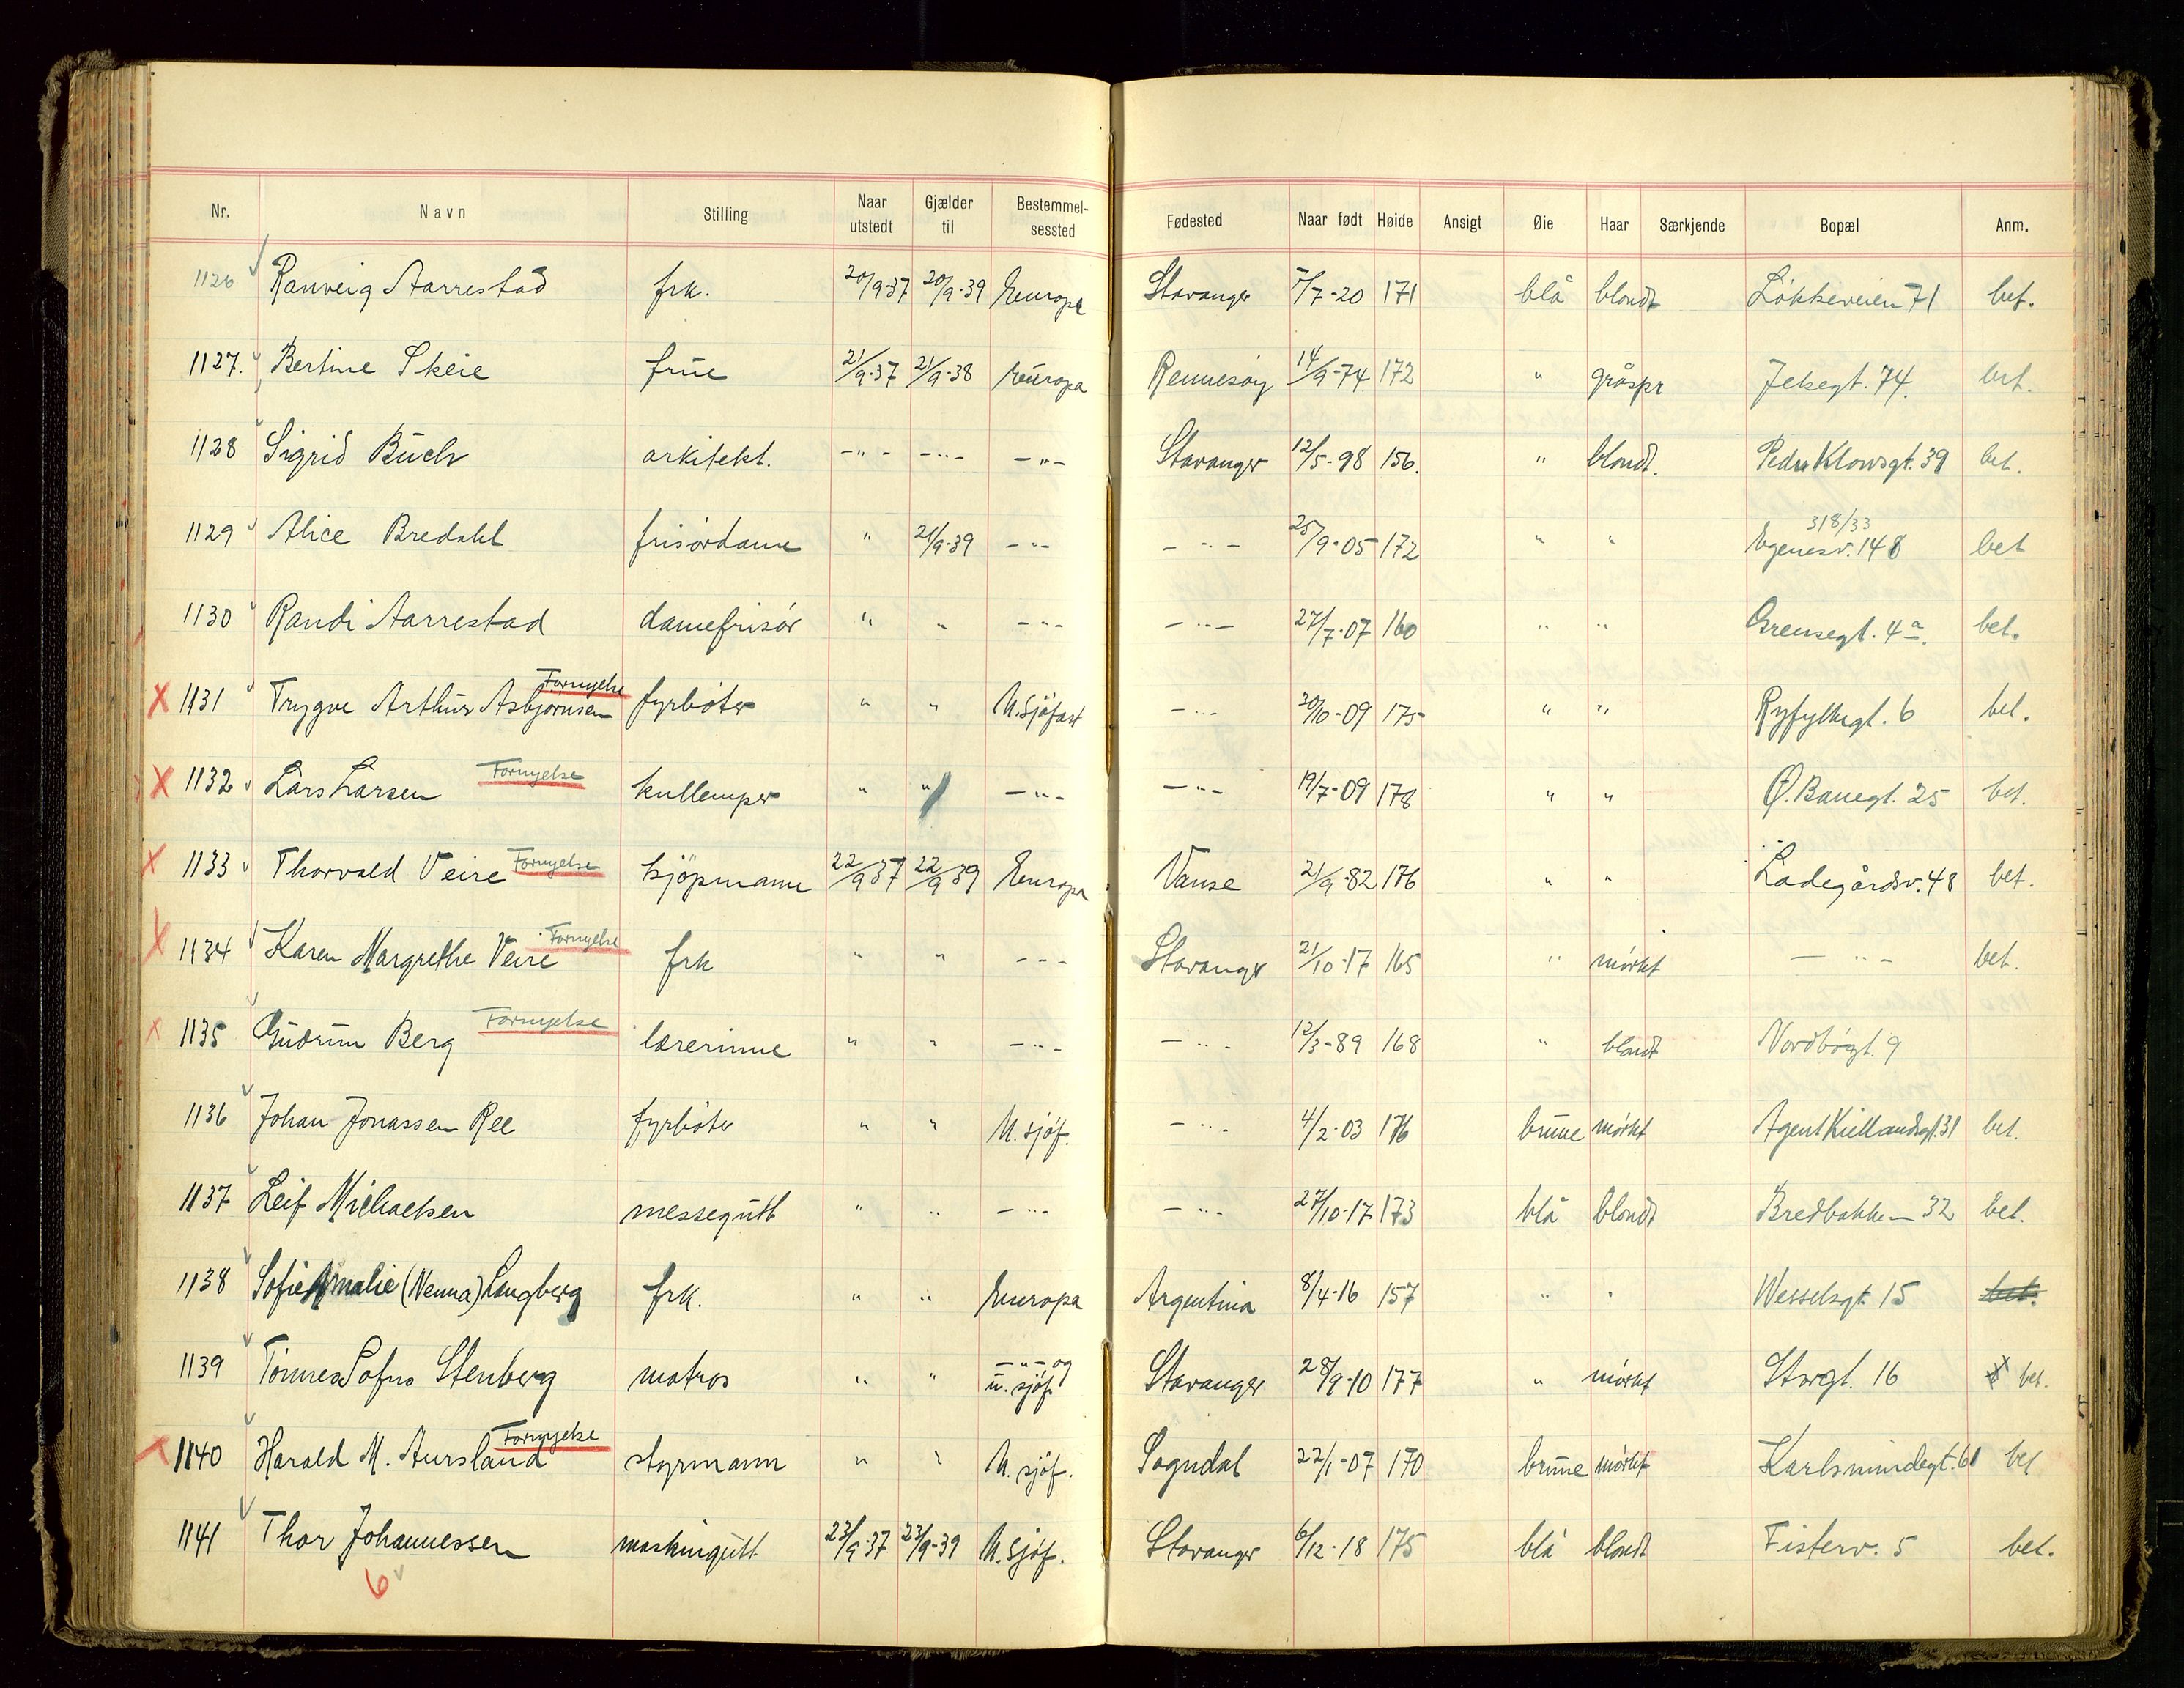 Nr. Navn Stilling Naar utstedt Gjælder til Bestemmelsessted Fødested Naar født Høide Ansigt Øie Haar Særkjende Bopæl Anm.
1126 Ranveig Aarrestad frk. 20/9-37 20/9-39 Europa Stavanger 7/7-20 171 blå blondt Løkkeveien 71 bet.
1127. Bertine Skeie frue 21/9-37 21/9-38 Europa Rennesøy 14/9-74 172 " gråspr Jelsegt. 74. bet.
1128 Sigrid Buch arkitekt. -"- -"- -"- Stavanger 12/5-98 156. " blondt. Peder Klowsgt. 39 bet.
1129 Alice Bredahl frisørdame " 21/9-39 -"- -"- 25/9-05 172 " " 318/33 Egenesv. 148 bet
1130 Randi Aarrestad damefrisør " " -"- -"- 27/7-07 160 " " Grensegt. 4a. bet.
X 1131 Trygve Arthur Asbjørnsen Fornyelse fyrbøter " " U.sjøfart -"- 30/10-09 175 " " Ryfylkegt. 6 bet.
X 1132 Lars Larsen Fornyelse kullemper " " -"- -"- 19/7-09 178 " " Ø. Banegt. 25 bet.
X 1133 Thorvald Veire Fornyelse kjøpmann 22/9 37 22/9 39 Europa Vanse 21/9-82 176 " " Ladegårdsv. 48 bet.
X 1134 Karen Margrethe Veire Fornyelse frk " " -"- Stavanger 21/10-17 165 " mørkt -"- bet.
X 1135 Gudrun Berg Fornyelse lærerinne " " -"- -"- 12/3-89 168 " blondt Nordbøgt. 9
1136 Johan Jonassen Ree fyrbøter " " U.sjøf. -"- 4/2-03 176 brune mørkt Agent Kiellandsgt. 31 bet.
1137 Leif Michaelsen messegutt " " -"- -"- 27/10-17 173 blå blondt Bredbakken 32 bet.
1138 Sofie Amalie (Nenna) Langberg frk. " " Europa Argentina 8/4-16 157 " " Wesselsgt. 15 bet.
1139 Tønnes Sofus Stenberg matros " " -"- og u. sjøf. Stavanger 28/9-10 177 " mørkt Storgt. 16 X bet.
X 1140 Harald M. Aursland Fornyelse styrmann " " U. sjøf. Sogndal 22/1-07 170 brune mørkt Karlsmindegt. 61 bet
1141 Thor Johannessen maskingutt 23/9-37 23/9-39 U.sjøf. Stavanger 6/12-18 175 blå blondt Fisterv. 5 bet.
6